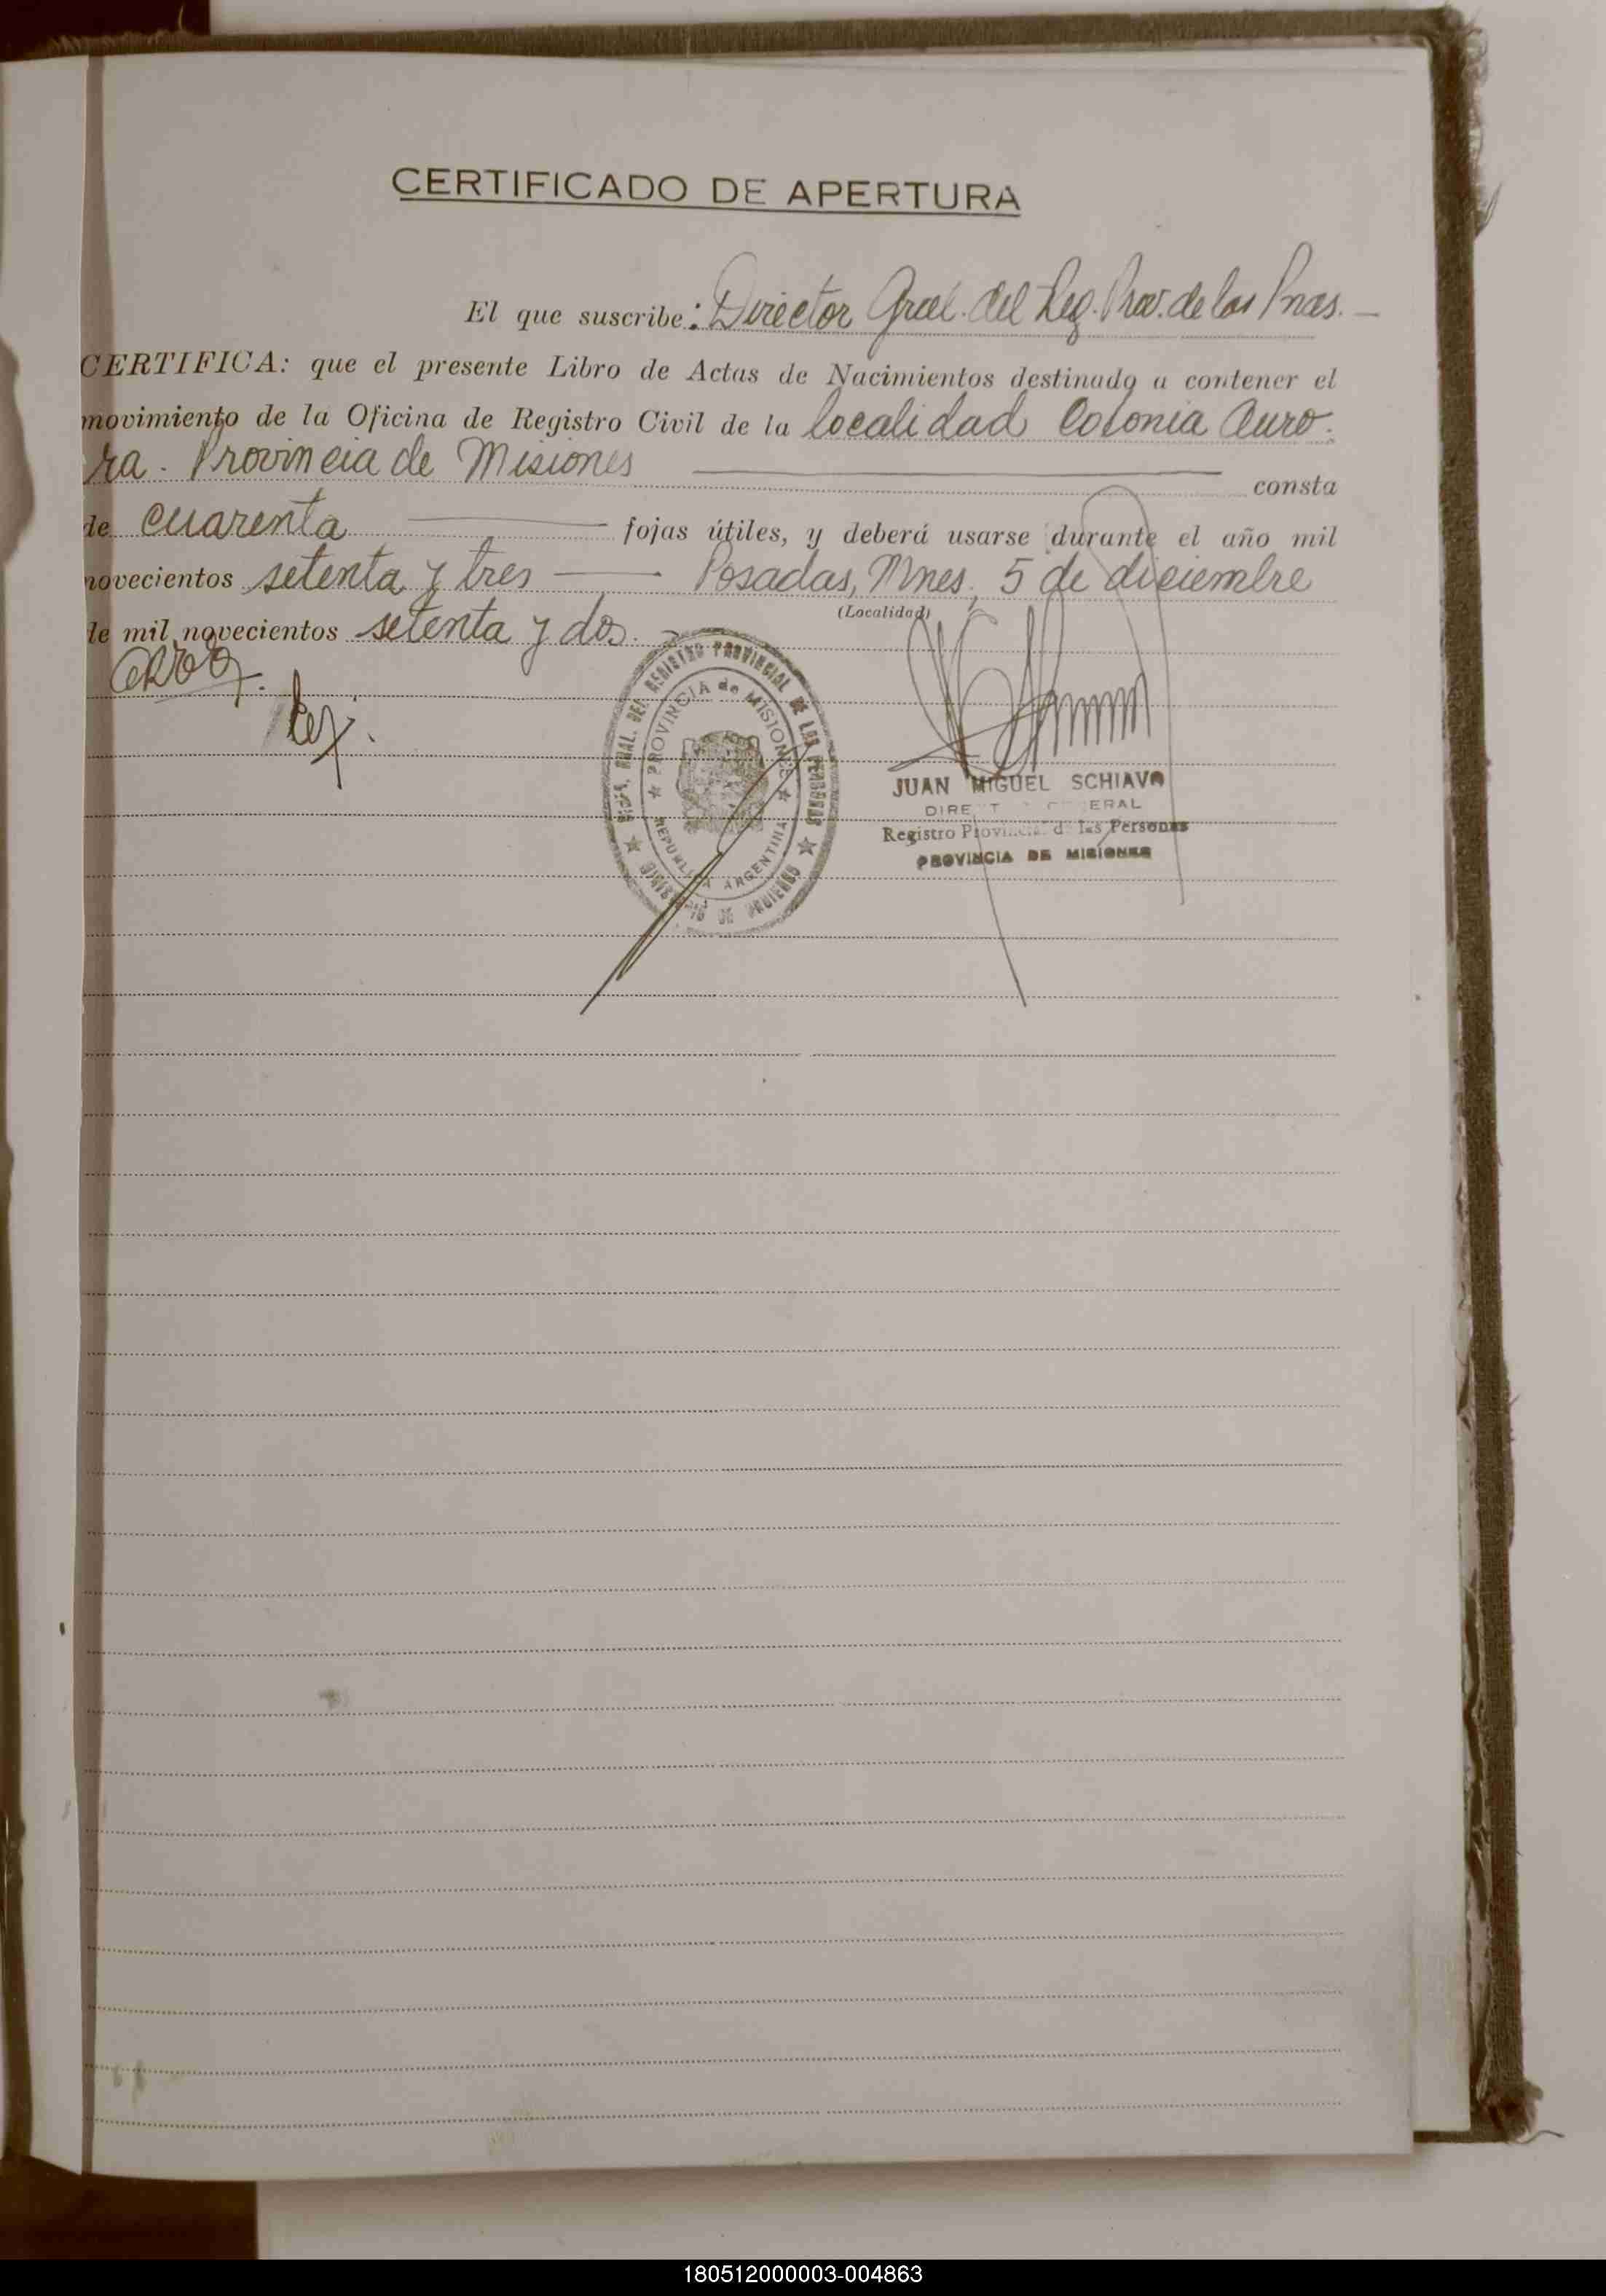 CERTIFICADO DE APERTURA
El que suscribe: Director Gral. del Reg. Prov. de las Pnas. —
CERTIFICA: que el presente Libro de Actas de Nacimientos destinado a contener el
movimiento de la Oficina de Registro Civil de la localidad Colonia Auro-
ra. Provincia de Misiones ——— consta
de cuarenta ——— fojas útiles, y deberá usarse durante el año mil
novecientos setenta y tres —— Posadas, Mnes, 5 de diciembre
(Localidad)
de mil novecientos setenta y dos.
DEL REGISTRO PROVINCIAL DE LAS PERSONAS
PROVINCIA de MISIONES
REPUBLICA ARGENTINA
MINISTERIO DE GOBIERNO
JUAN MIGUEL SCHIAVO
DIRECTOR GENERAL
Registro Provincial de las Personas
PROVINCIA DE MISIONES
180512000003-004863